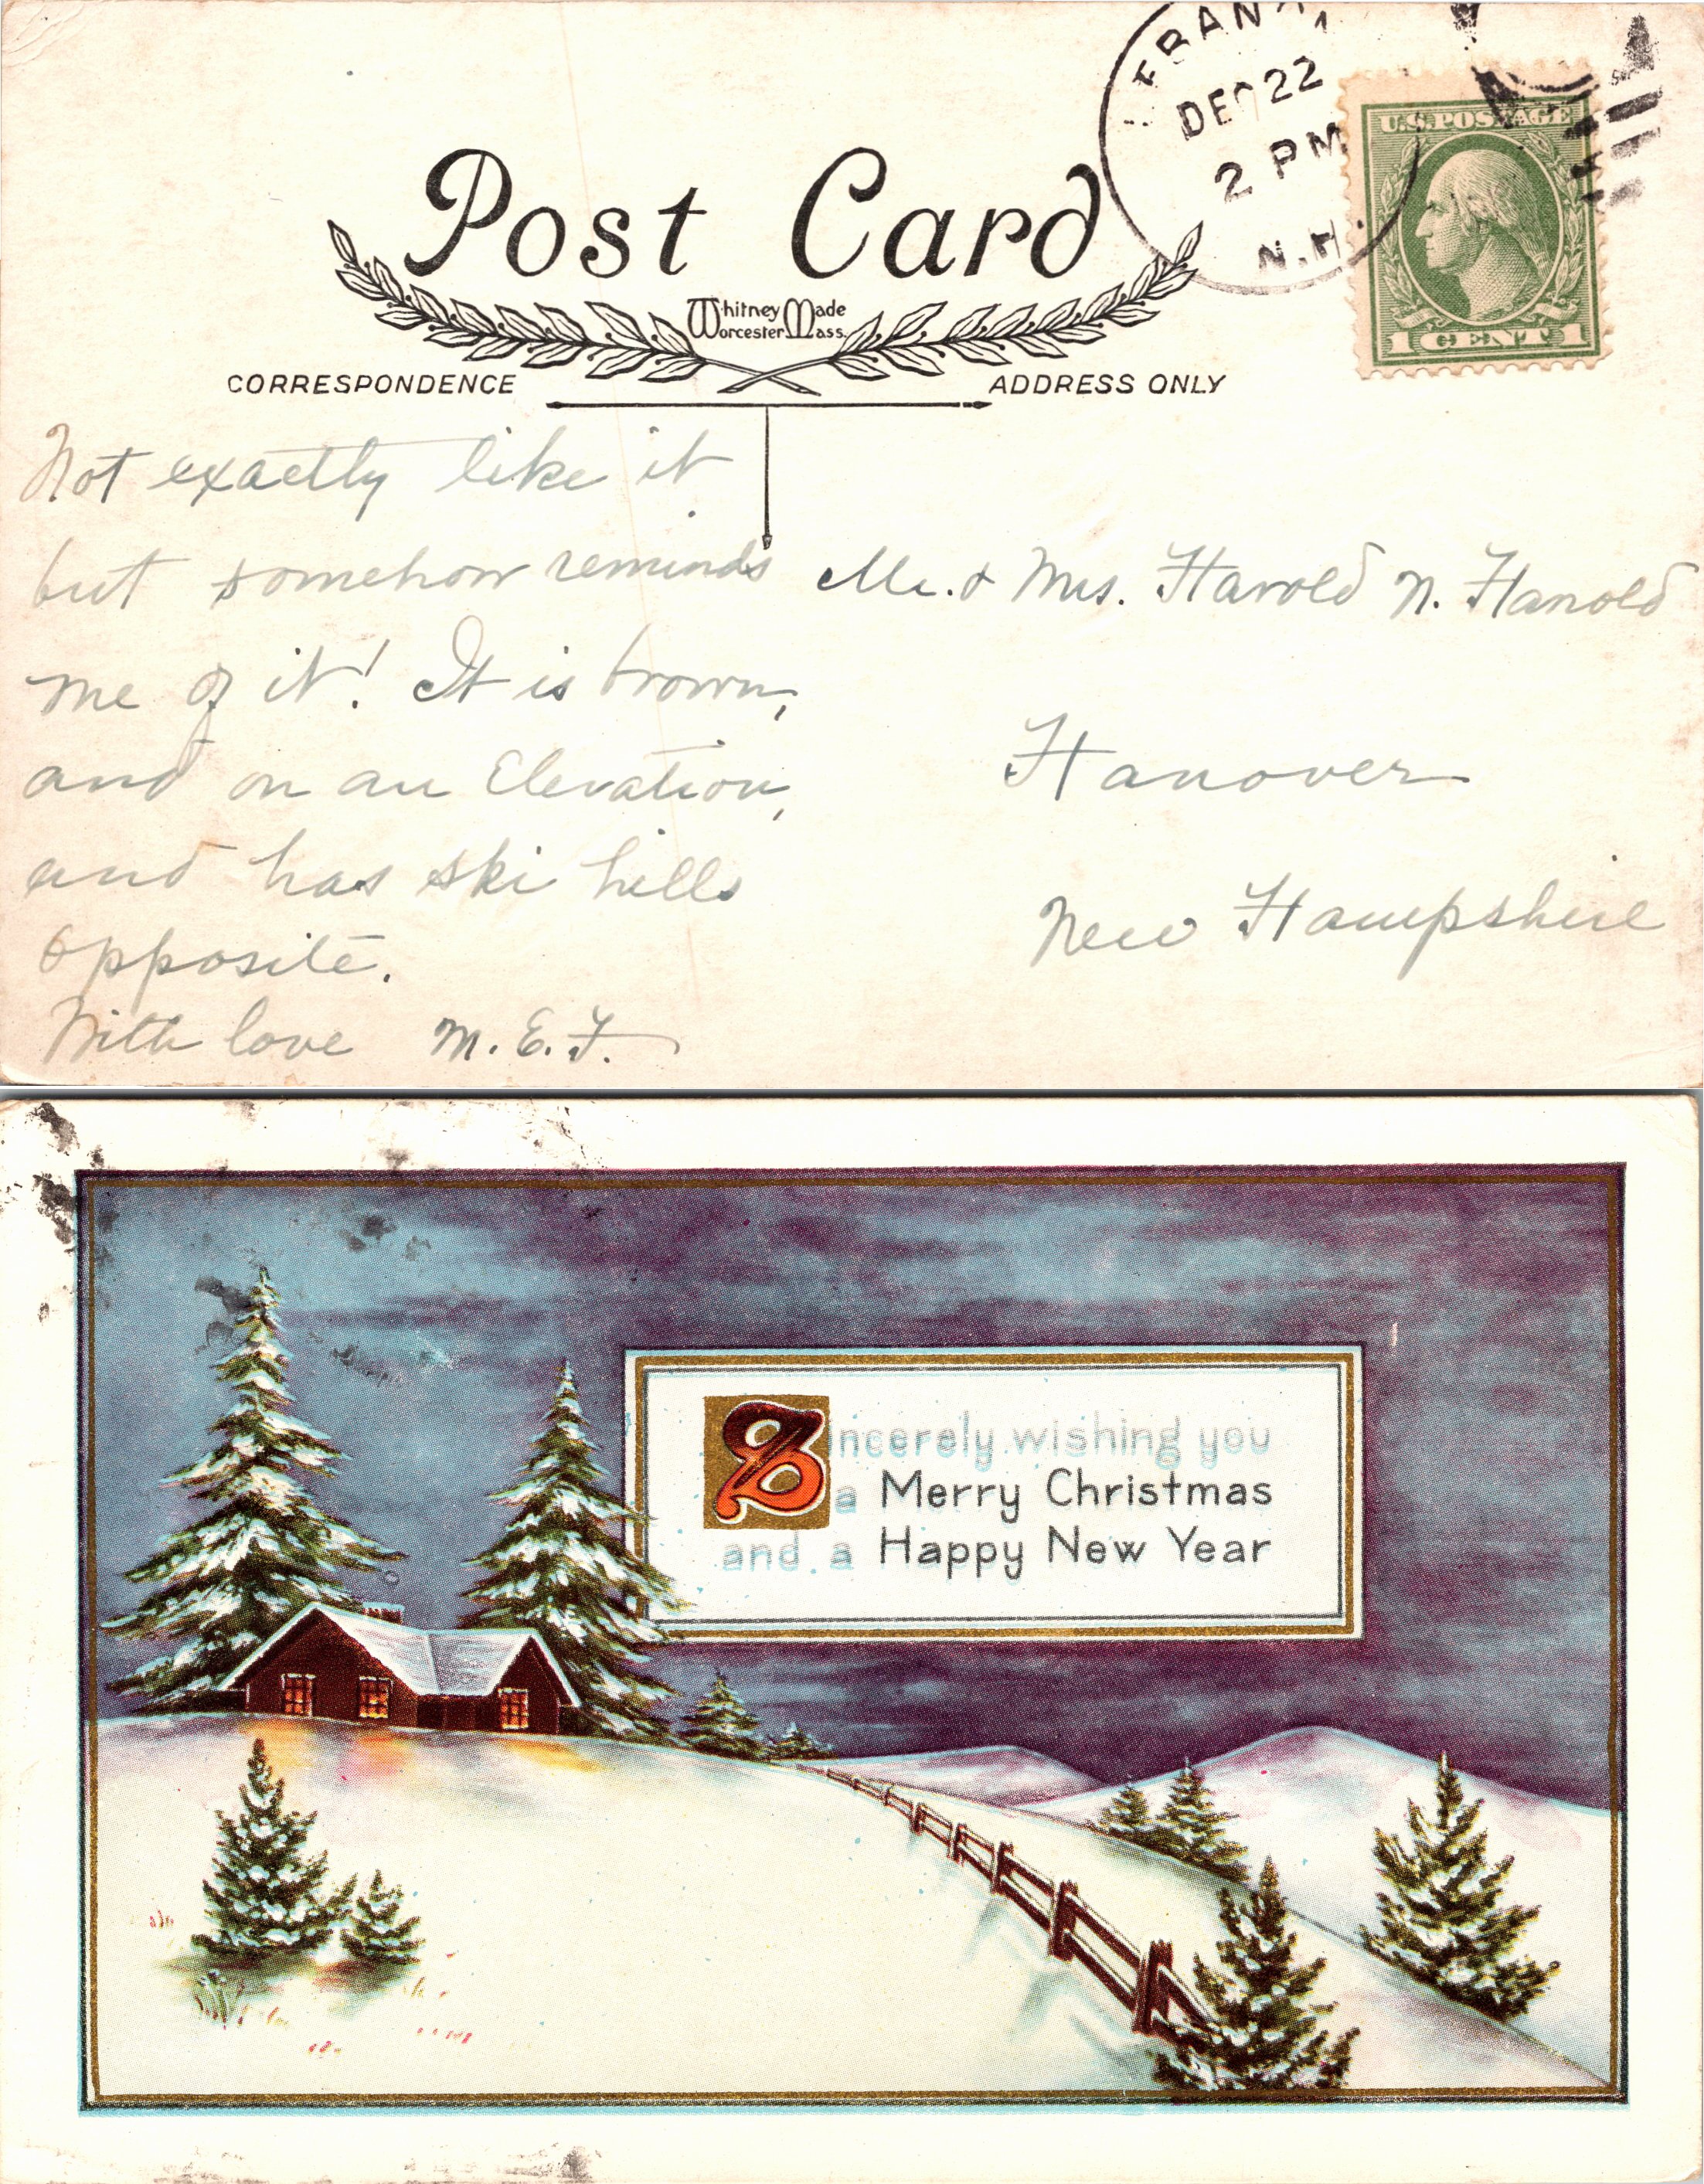 DEC 22
2 PM
N.H.
U.S. POSTAGE
1 CENT 1
Post Card
Whitney Made
Worcester Mass.
CORRESPONDENCE
ADDRESS ONLY
Not exactly like it
but somehow reminds
me of it! It is brown,
and on an Elevation,
and has ski hills
opposite.
With love M.E.F.
Mr. & Mrs. Harold N. Hanold
Hanover
New Hampshire
Sincerely wishing you
a Merry Christmas
and a Happy New Year